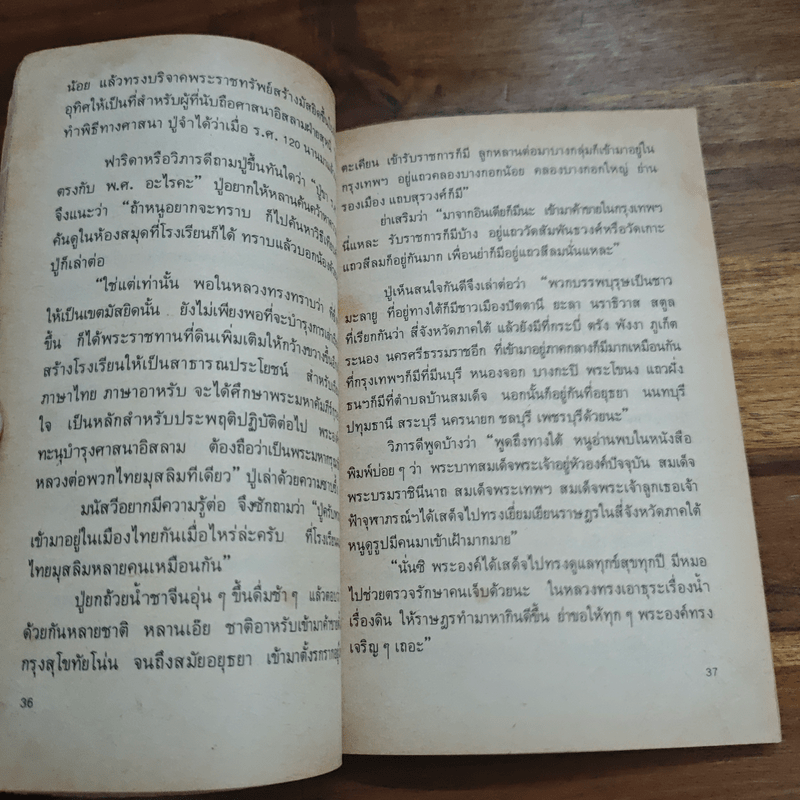 น้อย แล้วทรงบริจาคพระราชทรัพย์สร้างมัสยิดขึ้น
อุทิศให้เป็นที่สำหรับผู้ที่นับถือศาสนาอิสลามฝ่าย
ทำพิธีทางศาสนา ปู่จำได้ว่าเมื่อ ร.ศ. 120 นานมา
ฟาริดาหรือวิภารดีถามปู่ขึ้นทันใดว่า “ปู่ขา
ตรงกับ พ.ศ. อะไรคะ” ปู่อยากให้หลานค้นคว้าหา
จึงแนะว่า “ถ้าหนูอยากจะทราบ ก็ไปค้นหาวิธี
คันดูในห้องสมุดที่โรงเรียนก็ได้ ทราบแล้วบอกน้อง
ปู่ก็เล่าต่อ
“ใช่แต่เท่านั้น พอในหลวงทรงทราบว่า
ให้เป็นเขตมัสยิดนั้น ยังไม่เพียงพอที่จะบำรุงการ
ขึ้น ก็ได้พระราชทานที่ดินเพิ่มเติมให้กว้างขวางขึ้น
สร้างโรงเรียนให้เป็นสาธารณประโยชน์ สำหรับ
ภาษาไทย ภาษาอาหรับ จะได้ศึกษาพระมหาคัมภีร์
ใจ เป็นหลักสำหรับประพฤติปฏิบัติต่อไป
ทะนุบำรุงศาสนาอิสลาม ต้องถือว่าเป็นพระมหากรุณา
หลวงต่อพวกไทยมุสลิมทีเดียว” ปู่เล่าด้วยความ
มนัสวีอยากมีความรู้ต่อ จึงซักถามว่า “ปู่ครับ
เข้ามาอยู่ในเมืองไทยกันเมื่อไหร่ล่ะครับ ที่โรงเรียน
ไทยมุสลิมหลายคนเหมือนกัน”
ปู่ยกถ้วยน้ำชาจีนอุ่น ๆ ขึ้นดื่มช้า ๆ แล้วตอบ
ด้วยกันหลายชาติ หลานเอีย ชาติอาหรับเข้ามาค้าขาย
กรุงสุโขทัยโน่น จนถึงสมัยอยุธยา เข้ามาตั้งรกราก
36
ตะเคียน เข้ารับราชการก็มี ลูกหลานต่อมาบางกลุ่มก็เข้ามาอยู่ใน
กรุงเทพฯ อยู่แถวคลองบางกอกน้อย คลองบางกอกใหญ่ ย่าน
รองเมือง แถบสุรวงศ์ก็มี”
ย่าเสริมว่า “มาจากอินเดียก็มีนะ เข้ามาค้าขายในกรุงเทพฯ
นี่แหละ รับราชการก็มีบ้าง อยู่แถววัดสัมพันธวงศ์หรือวัดเกาะ
แถวสีลมก็อยู่กันมาก เพื่อนย่าก็มีอยู่แถวสีลมนั่นแหละ”
ปู่เห็นสนใจกันดีจึงเล่าต่อว่า “พวกบรรพบุรุษเป็นชาว
มะลายู ที่อยู่ทางใต้ก็มีชาวเมืองปัตตานี ยะลา นราธิวาส สตูล
ที่เรียกกันว่า สี่จังหวัดภาคใต้ แล้วยังมีที่กระบี่ ตรัง พังงา ภูเก็ต
ระนอง นครศรีธรรมราชอีก ที่เข้ามาอยู่ภาคกลางก็มีมากเหมือนกัน
ที่กรุงเทพฯก็มีที่มีนบุรี หนองจอก บางกะปิ พระโขนง แถวฝั่ง
ธนฯก็มีที่ตำบลบ้านสมเด็จ นอกนั้นก็อยู่กันที่อยุธยา นนทบุรี
ปทุมธานี สระบุรี นครนายก ชลบุรี เพชรบุรีด้วยนะ”
วิภารดีพูดบ้างว่า “พูดถึงทางใต้ หนูอ่านพบในหนังสือ
พิมพ์บ่อย ๆ ว่า พระบาทสมเด็จพระเจ้าอยู่หัวองค์ปัจจุบัน สมเด็จ
พระบรมราชินีนาถ สมเด็จพระเทพฯ สมเด็จพระเจ้าลูกเธอเจ้า
ฟ้าจุฬาภรณ์ฯได้เสด็จไปทรงเยี่ยมเยียนราษฎรในสี่จังหวัดภาคใต้
หนูดูรูปมีคนมาเข้าเฝ้ามากมาย”
“นั่นซิ พระองค์ได้เสด็จไปทรงดูแลทุกข์สุขทุกปี มีหมอ
ไปช่วยตรวจรักษาคนเจ็บด้วยนะ ในหลวงทรงเอาธุระเรื่องน้ำ
เรื่องดิน ให้ราษฎรทำมาหากินดีขึ้น ย่าขอให้ทุก ๆ พระองค์ทรง
เจริญ ๆ เถอะ”
37